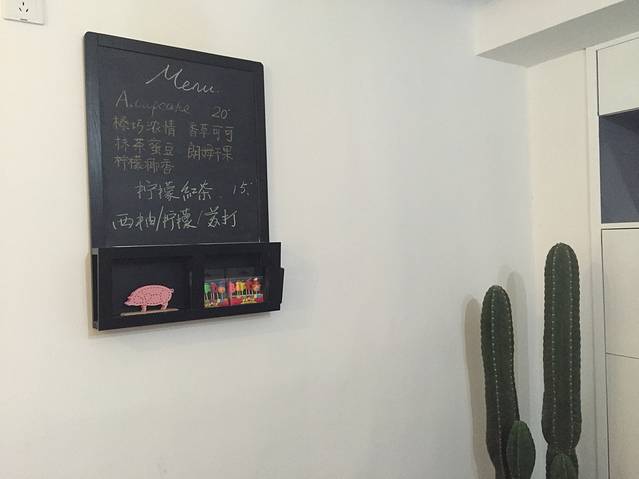 Menu.
A. cupcake 20
榛巧浓情 香草可可
抹茶蜜豆 朗姆干果
柠檬椰香
柠檬紅茶. 15.
西柚/柠檬/苏打